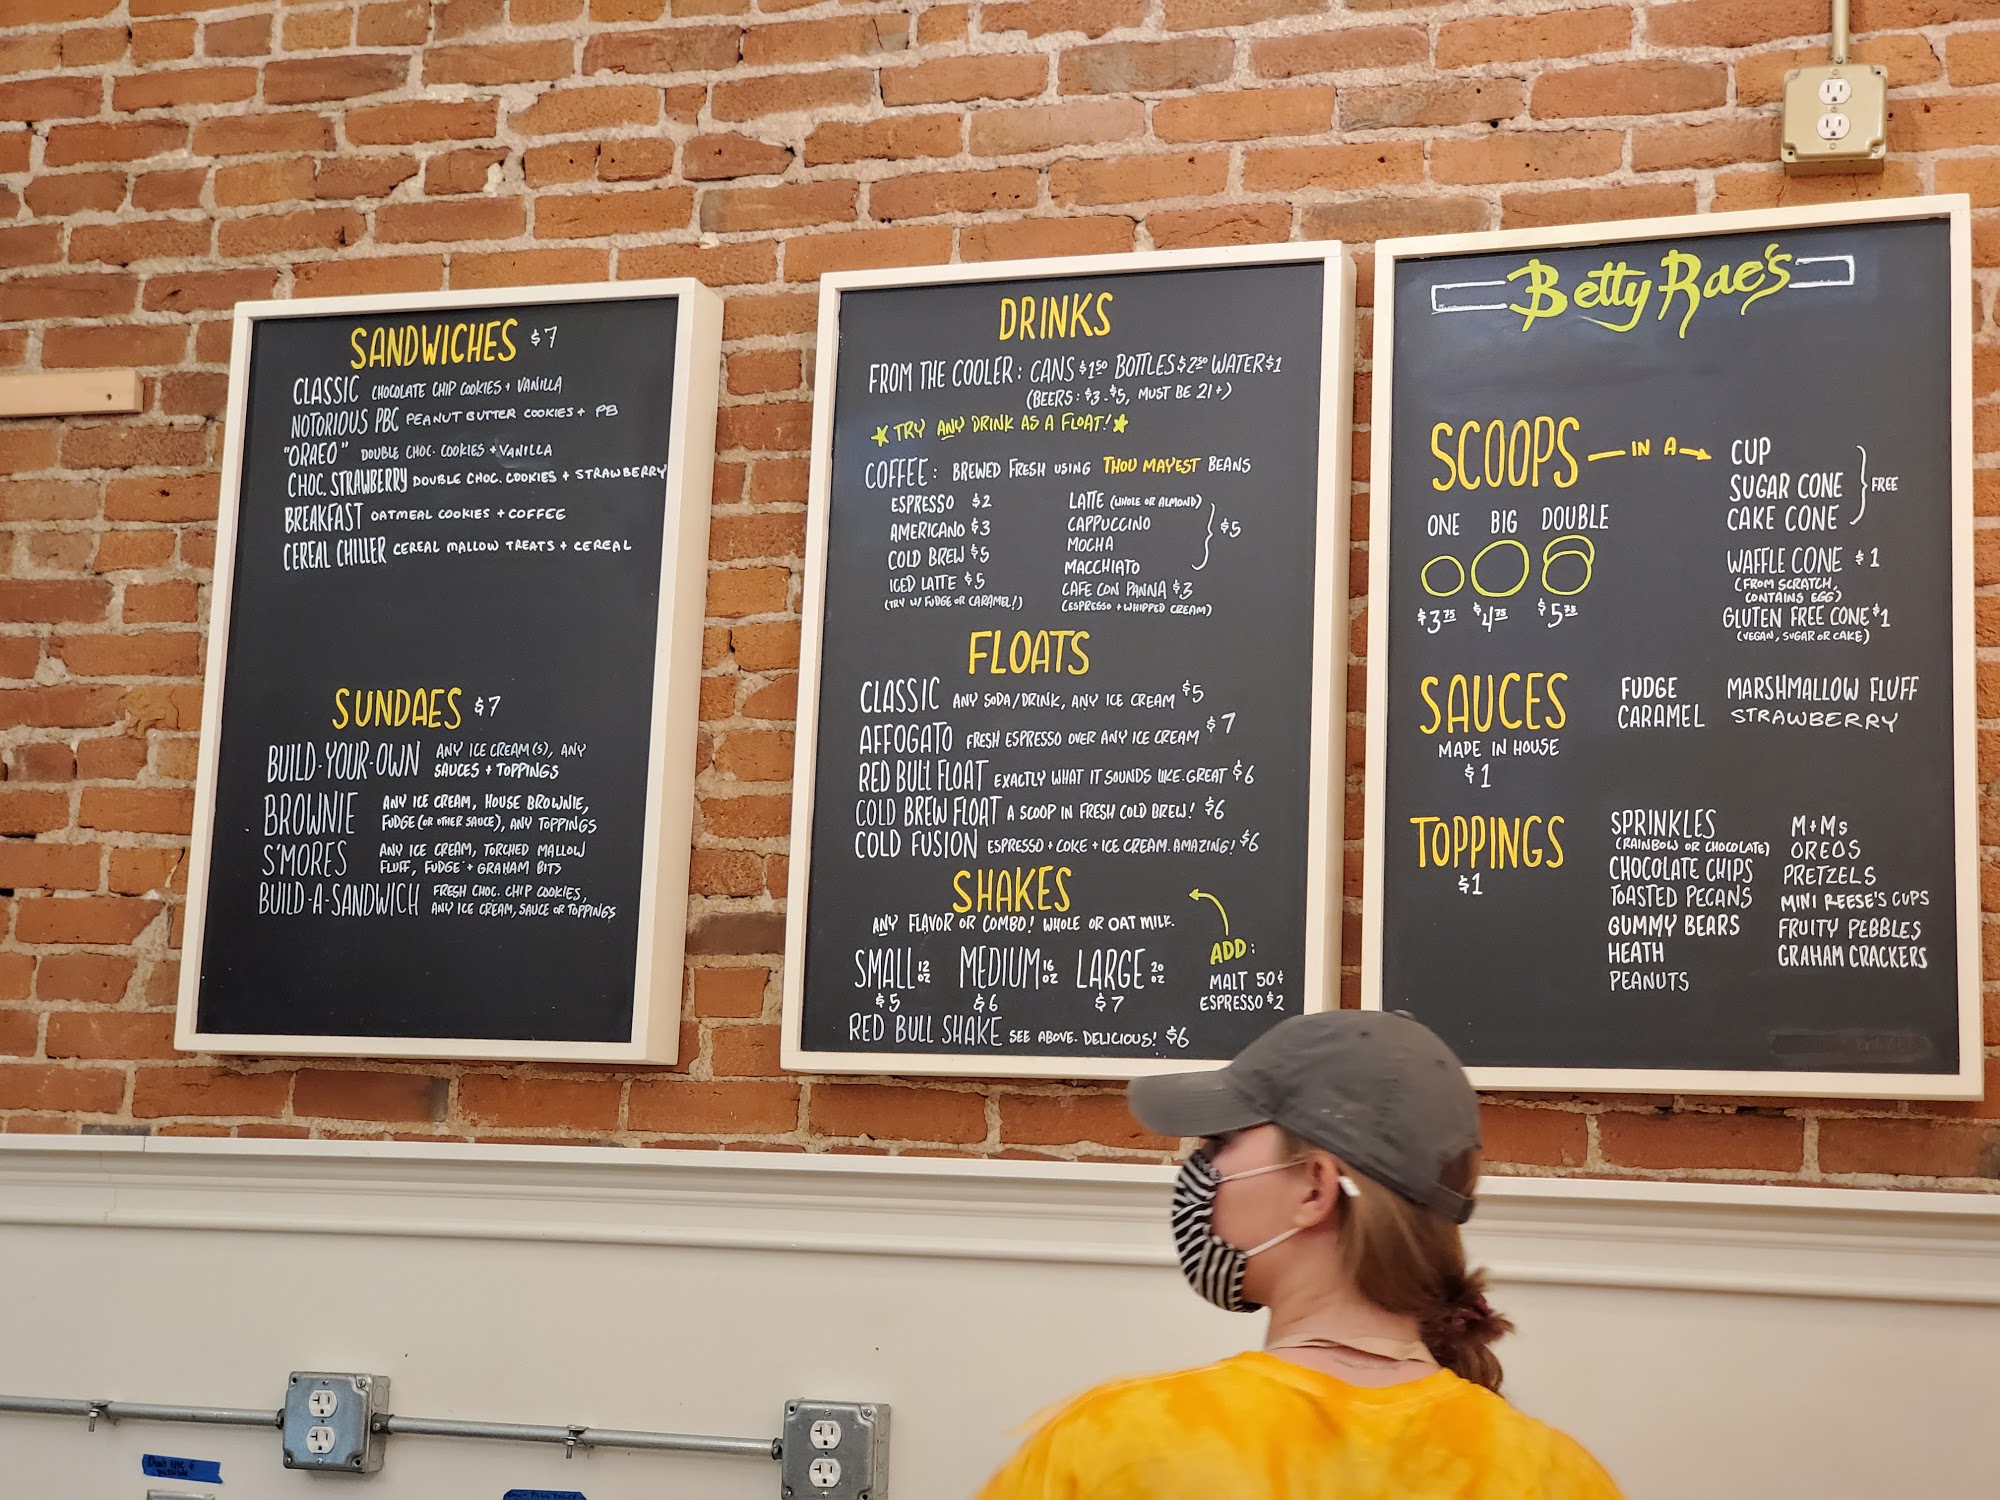 SANDWICHES $7
CLASSIC CHOCOLATE CHIP COOKIES + VANILLA
NOTORIOUS PBC PEANUT BUTTER COOKIES + PB
"ORAEO" DOUBLE CHOC. COOKIES + VANILLA
CHOC. STRAWBERRY DOUBLE CHOC. COOKIES + STRAWBERRY
BREAKFAST OATMEAL COOKIES + COFFEE
CEREAL CHILLER CEREAL MALLOW TREATS + CEREAL
SUNDAES $7
BUILD-YOUR-OWN ANY ICE CREAM(S), ANY
SAUCES + TOPPINGS
BROWNIE ANY ICE CREAM, HOUSE BROWNIE,
FUDGE (OR OTHER SAUCE), ANY TOPPINGS
S'MORES ANY ICE CREAM, TORCHED MALLOW
FLUFF, FUDGE + GRAHAM BITS
BUILD-A-SANDWICH FRESH CHOC. CHIP COOKIES,
ANY ICE CREAM, SAUCE OR TOPPINGS
DRINKS
FROM THE COOLER: CANS $1.50 BOTTLES $2.50 WATER $1
(BEERS: $3-$5, MUST BE 21+)
TRY ANY DRINK AS A FLOAT!
COFFEE: BREWED FRESH USING THOU MAYEST BEANS
ESPRESSO $2
AMERICANO $3
COLD BREW $5
ICED LATTE $5
(TRY W/ FUDGE OR CARAMEL!)
LATTE (WHOLE OR ALMOND)
CAPPUCCINO
MOCHA
MACCHIATO
$5
CAFE CON PANNA $3
(ESPRESSO + WHIPPED CREAM)
FLOATS
CLASSIC ANY SODA/DRINK, ANY ICE CREAM $5
AFFOGATO FRESH ESPRESSO OVER ANY ICE CREAM $7
RED BULL FLOAT EXACTLY WHAT IT SOUNDS LIKE. GREAT $6
COLD BREW FLOAT A SCOOP IN FRESH COLD BREW! $6
COLD FUSION ESPRESSO + COKE + ICE CREAM. AMAZING! $6
SHAKES
ANY FLAVOR OR COMBO! WHOLE OR OAT MILK.
SMALL 12 OZ MEDIUM 16 OZ LARGE 20 OZ
$5 $6 $7
ADD:
MALT 50¢
ESPRESSO $2
RED BULL SHAKE SEE ABOVE. DELICIOUS! $6
Betty Rae's
SCOOPS IN A
CUP
SUGAR CONE
CAKE CONE
FREE
ONE BIG DOUBLE
$3.75 $4.75 $5.75
WAFFLE CONE $1
(FROM SCRATCH,
CONTAINS EGG)
GLUTEN FREE CONE $1
(VEGAN, SUGAR OR CAKE)
SAUCES
MADE IN HOUSE
$1
FUDGE
CARAMEL
MARSHMALLOW FLUFF
STRAWBERRY
TOPPINGS
$1
SPRINKLES
(RAINBOW OR CHOCOLATE)
CHOCOLATE CHIPS
TOASTED PECANS
GUMMY BEARS
HEATH
PEANUTS
M+Ms
OREOS
PRETZELS
MINI REESE'S CUPS
FRUITY PEBBLES
GRAHAM CRACKERS